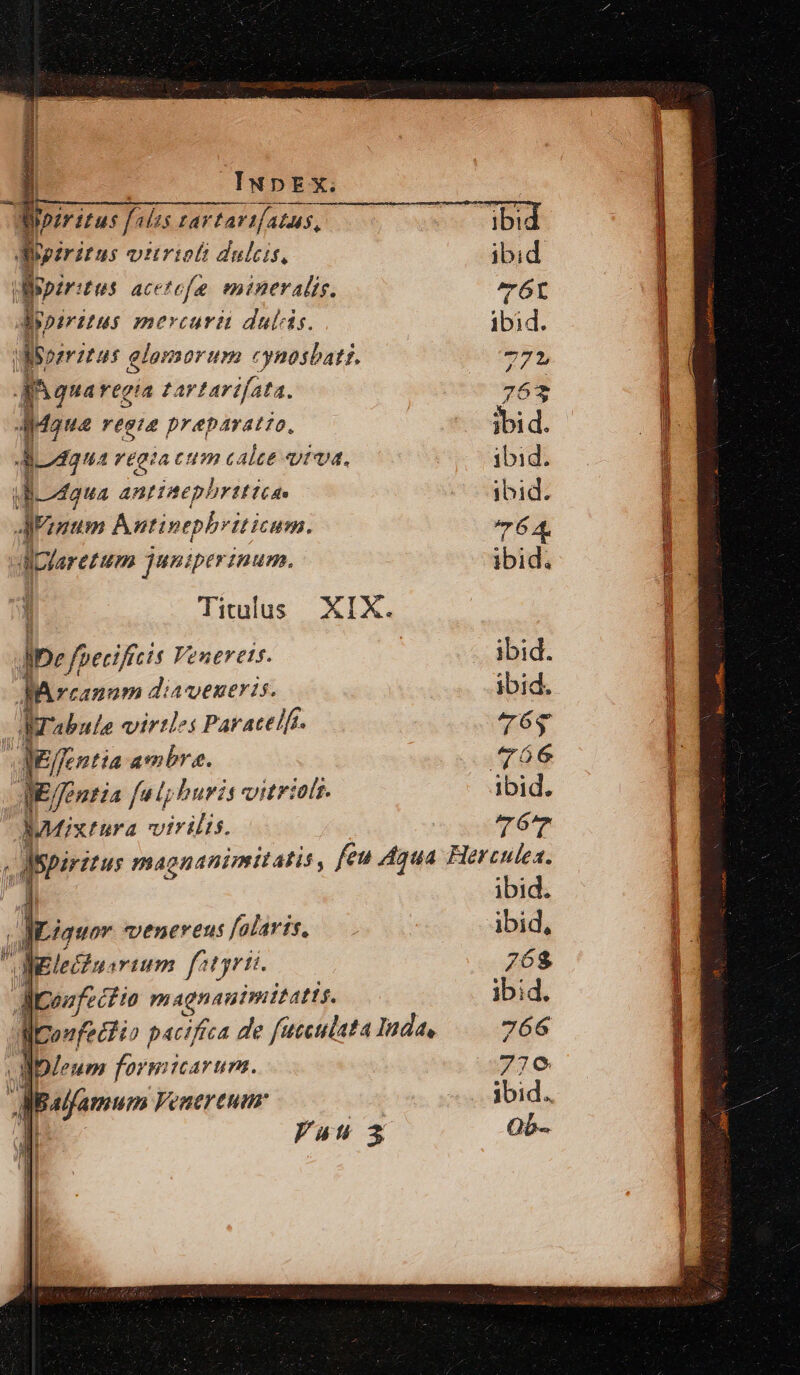 INDEX.
Spiritus ſalis tartariſatus, ibid
Spiritus vitrioli dulcis, ibid
Spiritus acetoſæ mineralis. 761
Spiritus mercurii dulcis. ibid.
Spiritus glomorum cynosbati. 772
Aqua regia tartariſata. 763
Aquæ regiæ præparatio, ibid.
Aqua regia cum calce viva, ibid.
Aqua antinephritica. ibid.
Vinum Antinephriticum. 764
Claretum juniperinum. ibid.
Titulus XIX.
De ſpecificis Venereis. ibid.
Arcanum diaveneris. ibid.
Tabulæ viriles Paracelſi. 765
Eſſentia ambræ. 766
Eſſentia ſulphuris vitrioli. ibid.
Mixtura virilis. 767
Spiritus magnanimitatis, ſeu Aqua Herculea.
ibid.
Liquor venereus ſolaris, ibid,
Electuarium ſatyrii. 768
Confectio magnanimitatis. ibid.
Confectio pacifica de ſucculata Inda, 766
Oleum formicarum. 770
Balſamum Venereum ibid.
Vuu 3 Ob-